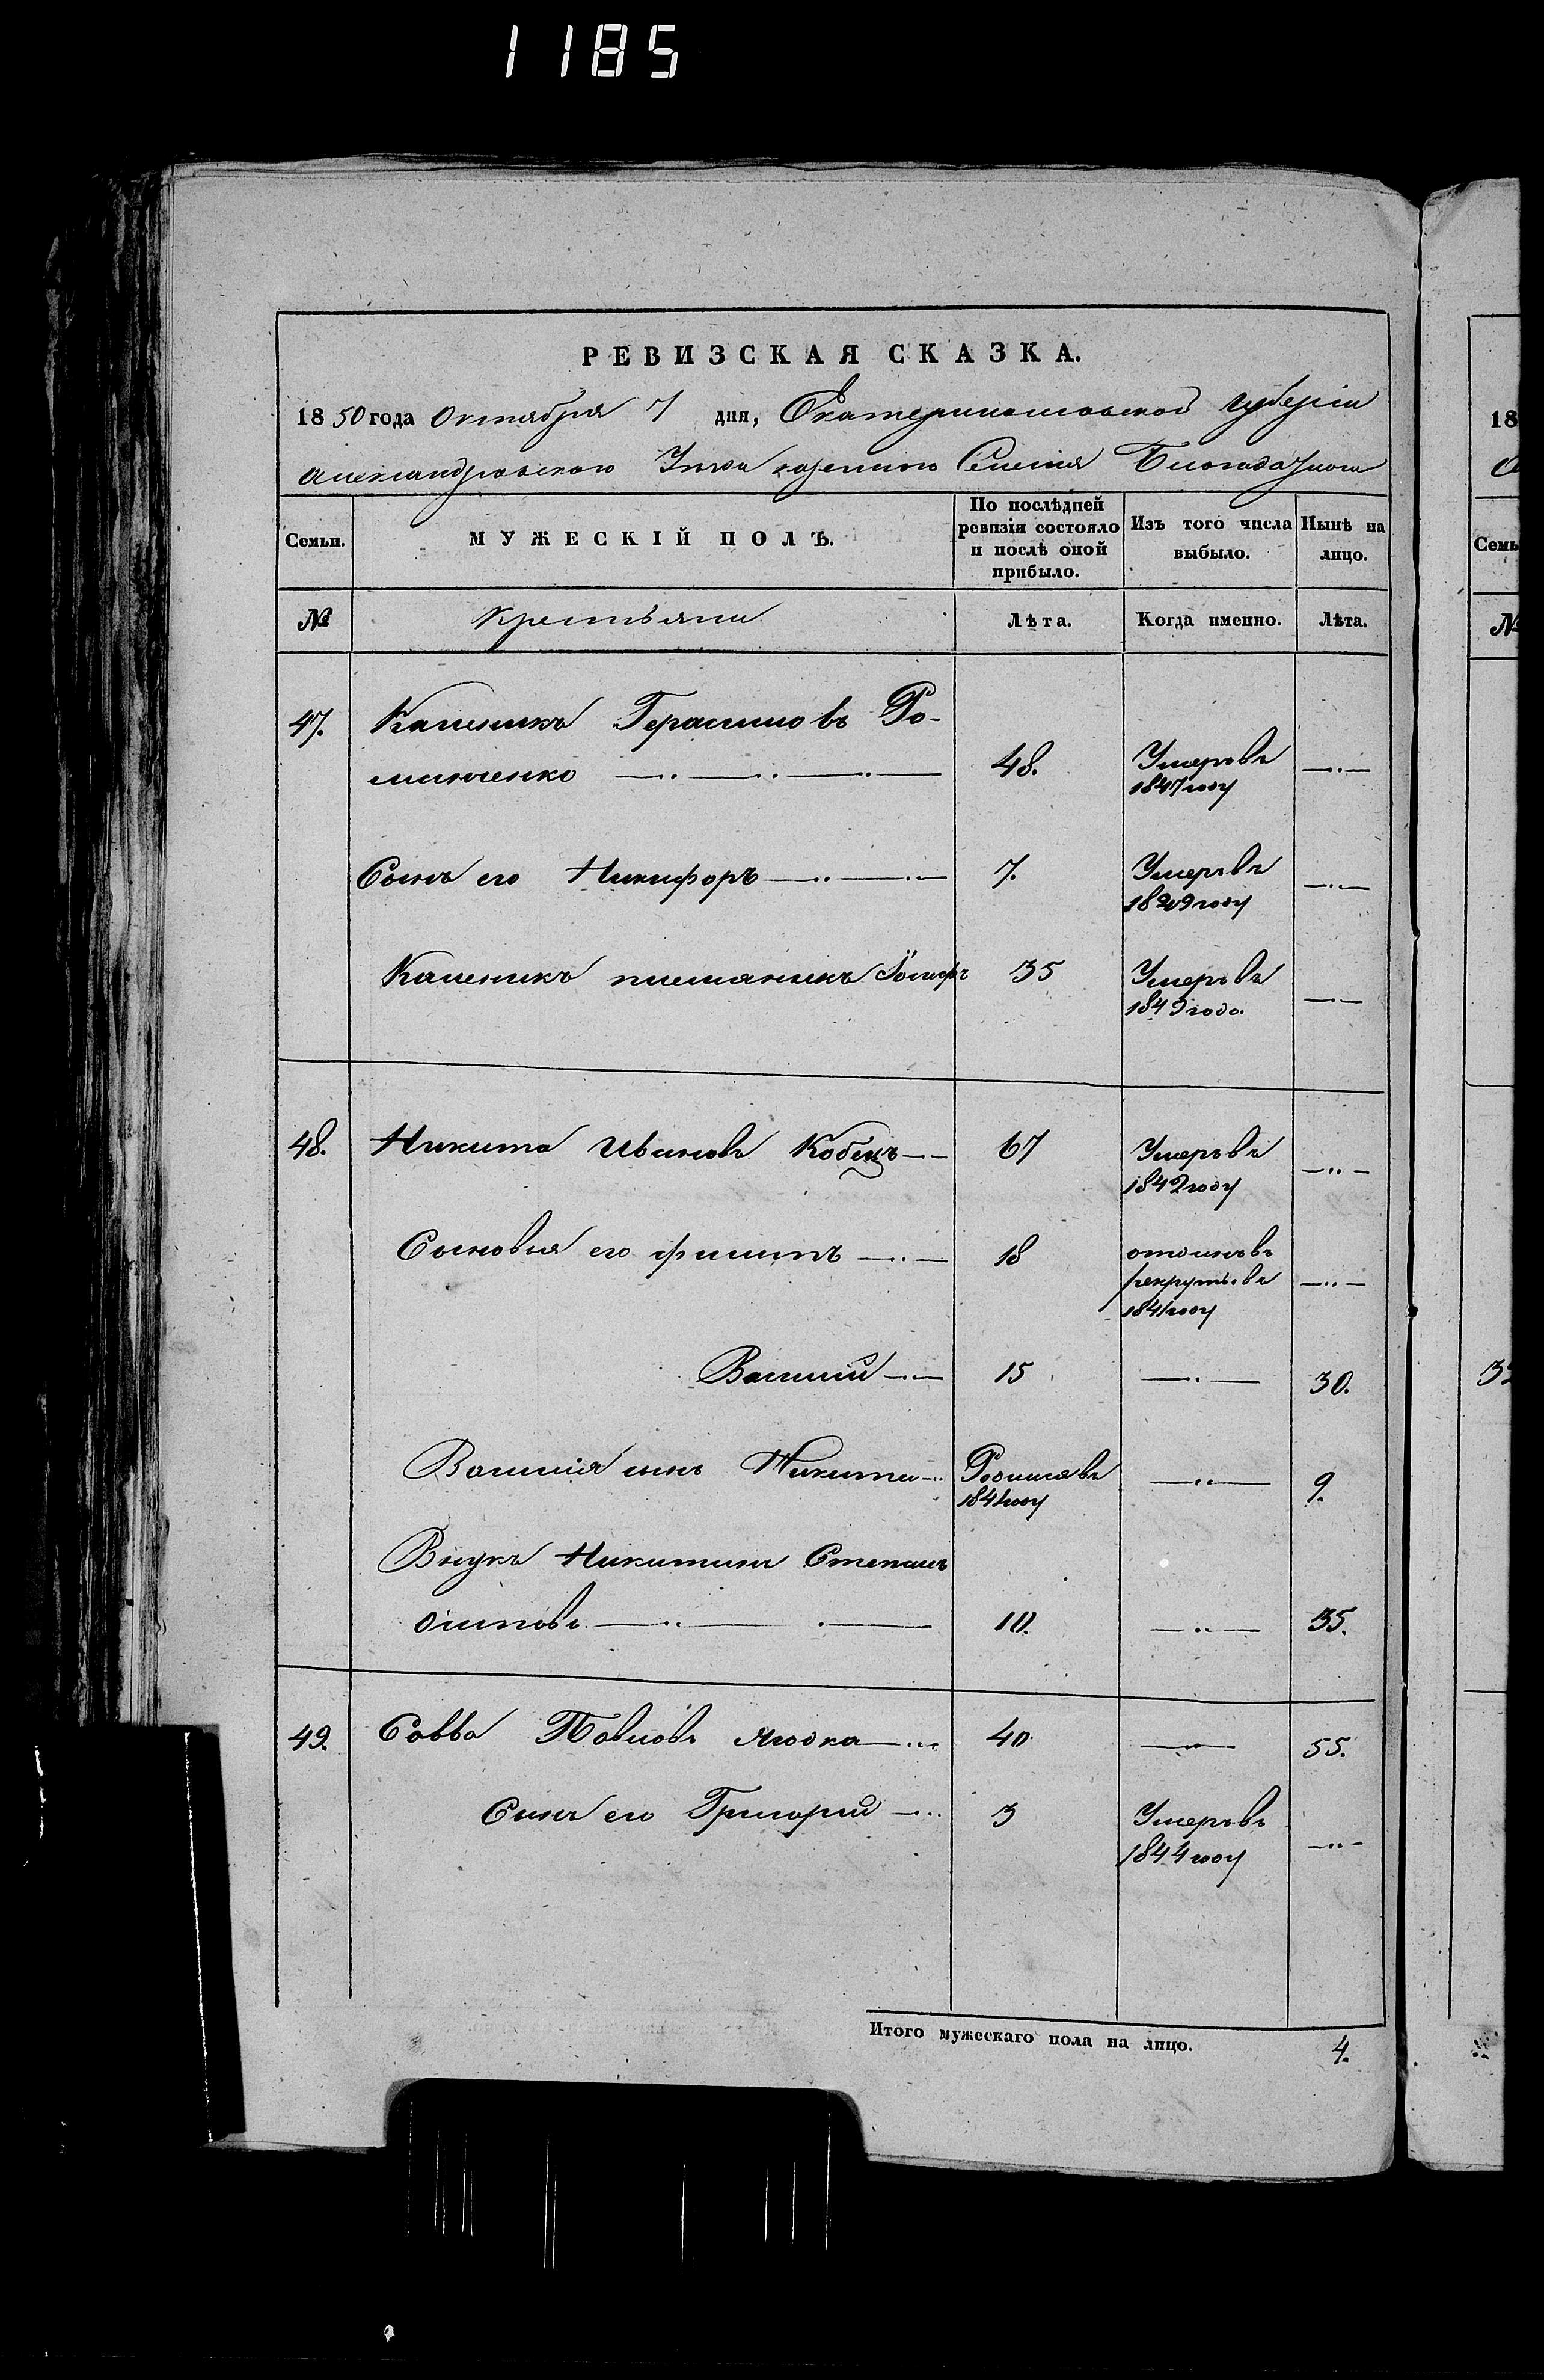 1185
РЕВИЗСКАЯ СКАЗКА.
1850 года Октября 7 дня, Екатеринославской губерніи
Александровского Уезда казенного Селенія
Семьи. МУЖЕСКІЙ ПОЛЪ. По послѣдней ревизіи состояло и послѣ оной прибыло. Изъ того числа выбыло. Нынѣ на лицо.
№ Крестьяни Лѣта. Когда именно. Лѣта.
47. Каленикъ Герасимовъ Ро-
манченко 48. Умеръ въ —..—
1847 году
Сынъ его Никифоръ 7. Умеръ въ —..—
году
Каленикъ племяникъ Іосифъ 35 Умеръ въ —..—
года.
48. Никита Ивановъ Кобецъ 67 Умеръ въ —..—
1842 году
Сыновья его Филипъ 18 отданъ въ
рекруты въ —..—
1841 году
Василій 15 —..— 30.
Василія сынъ Никита Родился въ —..— 9.
1841 году
Внукъ Никитинъ Степанъ
Осиповъ 10. —..— 35.
49. Савва Павловъ Ягодка 40 —..— 55.
Сынъ его Григорій 3 Умеръ въ —..—
1844 году
Итого мужескаго пола на лицо. 4.
18
Семь
№